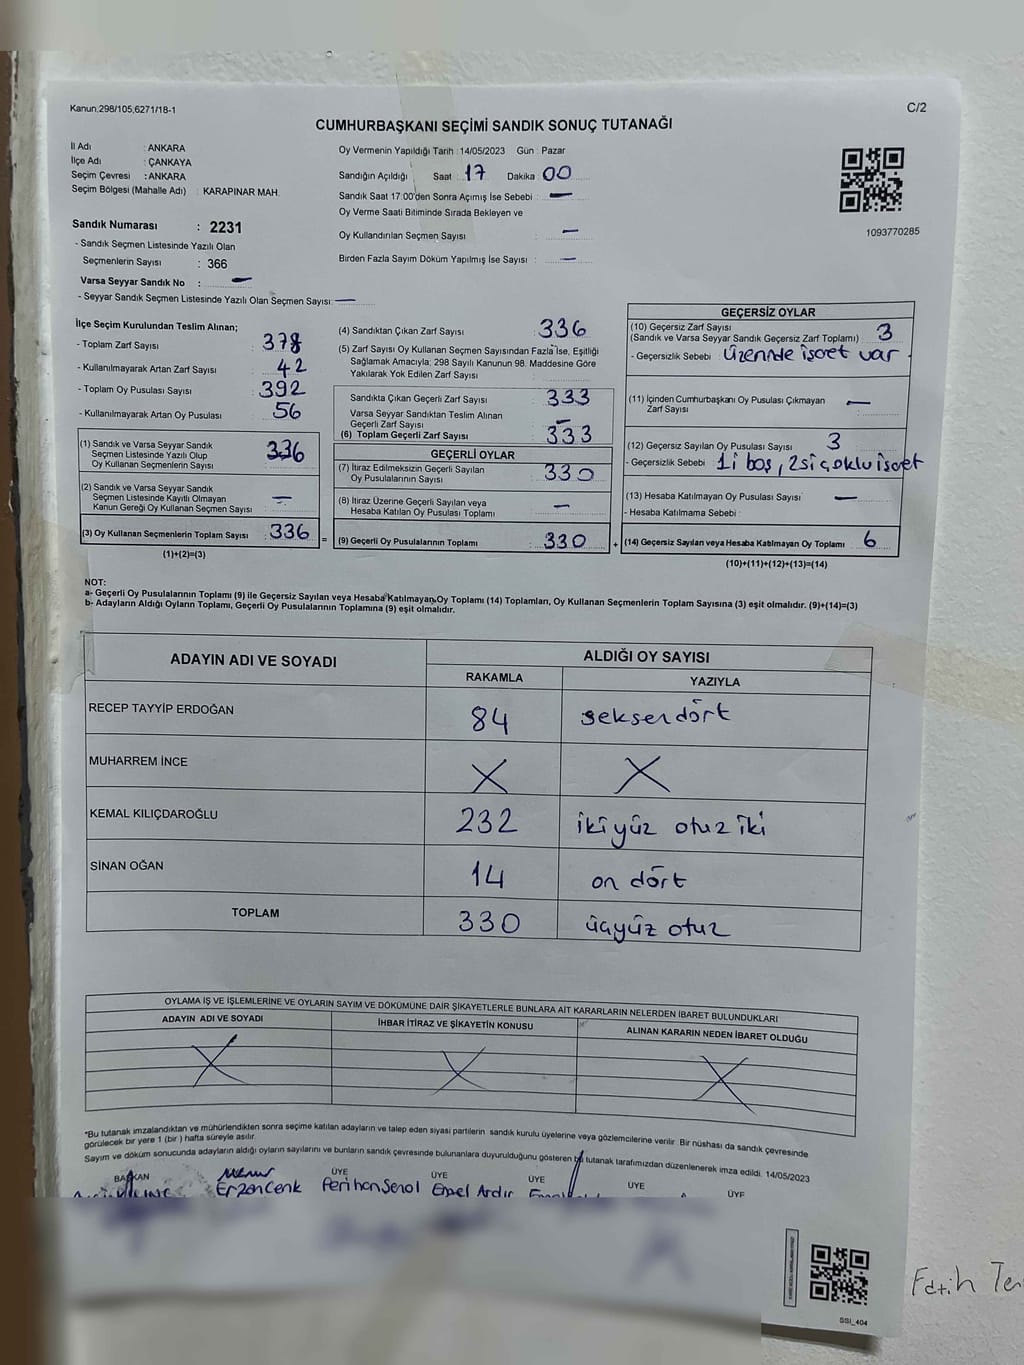 Kanun,298/105,6271/18-1
C/2
CUMHURBAŞKANI SEÇİMİ SANDIK SONUÇ TUTANAĞI
İl Adı : ANKARA
İlçe Adı : ÇANKAYA
Seçim Çevresi : ANKARA
Seçim Bölgesi (Mahalle Adı) : KARAPINAR MAH.
Sandık Numarası : 2231
- Sandık Seçmen Listesinde Yazılı Olan
Seçmenlerin Sayısı : 366
Varsa Seyyar Sandık No : —
- Seyyar Sandık Seçmen Listesinde Yazılı Olan Seçmen Sayısı: —
Oy Vermenin Yapıldığı Tarih : 14/05/2023 Gün : Pazar
Sandığın Açıldığı Saat : 17 Dakika : 00
Sandık Saat 17:00'den Sonra Açımış İse Sebebi : —
Oy Verme Saati Bitiminde Sırada Bekleyen ve
Oy Kullandırılan Seçmen Sayısı : —
Birden Fazla Sayım Döküm Yapılmış İse Sayısı : —
1093770285
İlçe Seçim Kurulundan Teslim Alınan;
- Toplam Zarf Sayısı : 378
- Kullanılmayarak Artan Zarf Sayısı : 42
- Toplam Oy Pusulası Sayısı : 392
- Kullanılmayarak Artan Oy Pusulası : 56
(1) Sandık ve Varsa Seyyar Sandık
Seçmen Listesinde Yazılı Olup
Oy Kullanan Seçmenlerin Sayısı : 336
(2) Sandık ve Varsa Seyyar Sandık
Seçmen Listesinde Kayıtlı Olmayan
Kanun Gereği Oy Kullanan Seçmen Sayısı : —
(3) Oy Kullanan Seçmenlerin Toplam Sayısı : 336 =
(1)+(2)=(3)
(4) Sandıktan Çıkan Zarf Sayısı : 336
(5) Zarf Sayısı Oy Kullanan Seçmen Sayısından Fazla İse, Eşitliği
Sağlamak Amacıyla; 298 Sayılı Kanunun 98. Maddesine Göre
Yakılarak Yok Edilen Zarf Sayısı :
Sandıkta Çıkan Geçerli Zarf Sayısı : 333
Varsa Seyyar Sandıktan Teslim Alınan
Geçerli Zarf Sayısı : —
(6) Toplam Geçerli Zarf Sayısı : 333
GEÇERLİ OYLAR
(7) İtiraz Edilmeksizin Geçerli Sayılan
Oy Pusulasının Sayısı : 330
(8) İtiraz Üzerine Geçerli Sayılan veya
Hesaba Katılan Oy Pusulası Toplamı : —
(9) Geçerli Oy Pusulalarının Toplamı : 330 +
GEÇERSİZ OYLAR
(10) Geçersiz Zarf Sayısı
(Sandık ve Varsa Seyyar Sandık Geçersiz Zarf Toplamı) : 3
- Geçersizlik Sebebi : üzerinde işaret var
(11) İçinden Cumhurbaşkanı Oy Pusulası Çıkmayan
Zarf Sayısı : —
(12) Geçersiz Sayılan Oy Pusulası Sayısı : 3
- Geçersizlik Sebebi : 1i boş, 2si çoklu işaret
(13) Hesaba Katılmayan Oy Pusulası Sayısı : —
- Hesaba Katılmama Sebebi :
(14) Geçersiz Sayılan veya Hesaba Katılmayan Oy Toplamı : 6
(10)+(11)+(12)+(13)=(14)
NOT:
a- Geçerli Oy Pusulalarının Toplamı (9) ile Geçersiz Sayılan veya Hesaba Katılmayan Oy Toplamı (14) Toplamları, Oy Kullanan Seçmenlerin Toplam Sayısına (3) eşit olmalıdır. (9)+(14)=(3)
b- Adayların Aldığı Oyların Toplamı, Geçerli Oy Pusulalarının Toplamına (9) eşit olmalıdır.
ADAYIN ADI VE SOYADI ALDIĞI OY SAYISI
RAKAMLA YAZIYLA
RECEP TAYYİP ERDOĞAN 84 seksendört
MUHARREM İNCE X X
KEMAL KILIÇDAROĞLU 232 ikiyüz otuz iki
SİNAN OĞAN 14 on dört
TOPLAM 330 üçyüz otuz
OYLAMA İŞ VE İŞLEMLERİNE VE OYLARIN SAYIM VE DÖKÜMÜNE DAİR ŞİKAYETLERLE BUNLARA AİT KARARLARIN NELERDEN İBARET BULUNDUKLARI
ADAYIN ADI VE SOYADI İHBAR İTİRAZ VE ŞİKAYETİN KONUSU ALINAN KARARIN NEDEN İBARET OLDUĞU
X X X
*Bu tutanak imzalandıktan ve mühürlendikten sonra seçime katılan adayların ve talep eden siyasi partilerin sandık kurulu üyelerine veya gözlemcilerine verilir. Bir nüshası da sandık çevresinde
görülecek bir yere 1 (bir) hafta süreyle asılır.
Sayım ve döküm sonucunda adayların aldığı oyların sayılarını ve bunların sandık çevresinde bulunanlara duyurulduğunu gösteren bu tutanak tarafımızdan düzenlenerek imza edildi. 14/05/2023
BAŞKAN ÜYE ÜYE ÜYE ÜYE ÜYE
Erzen Cenk Perihan Şenol Emel Ardır
SSI_404
Fatih